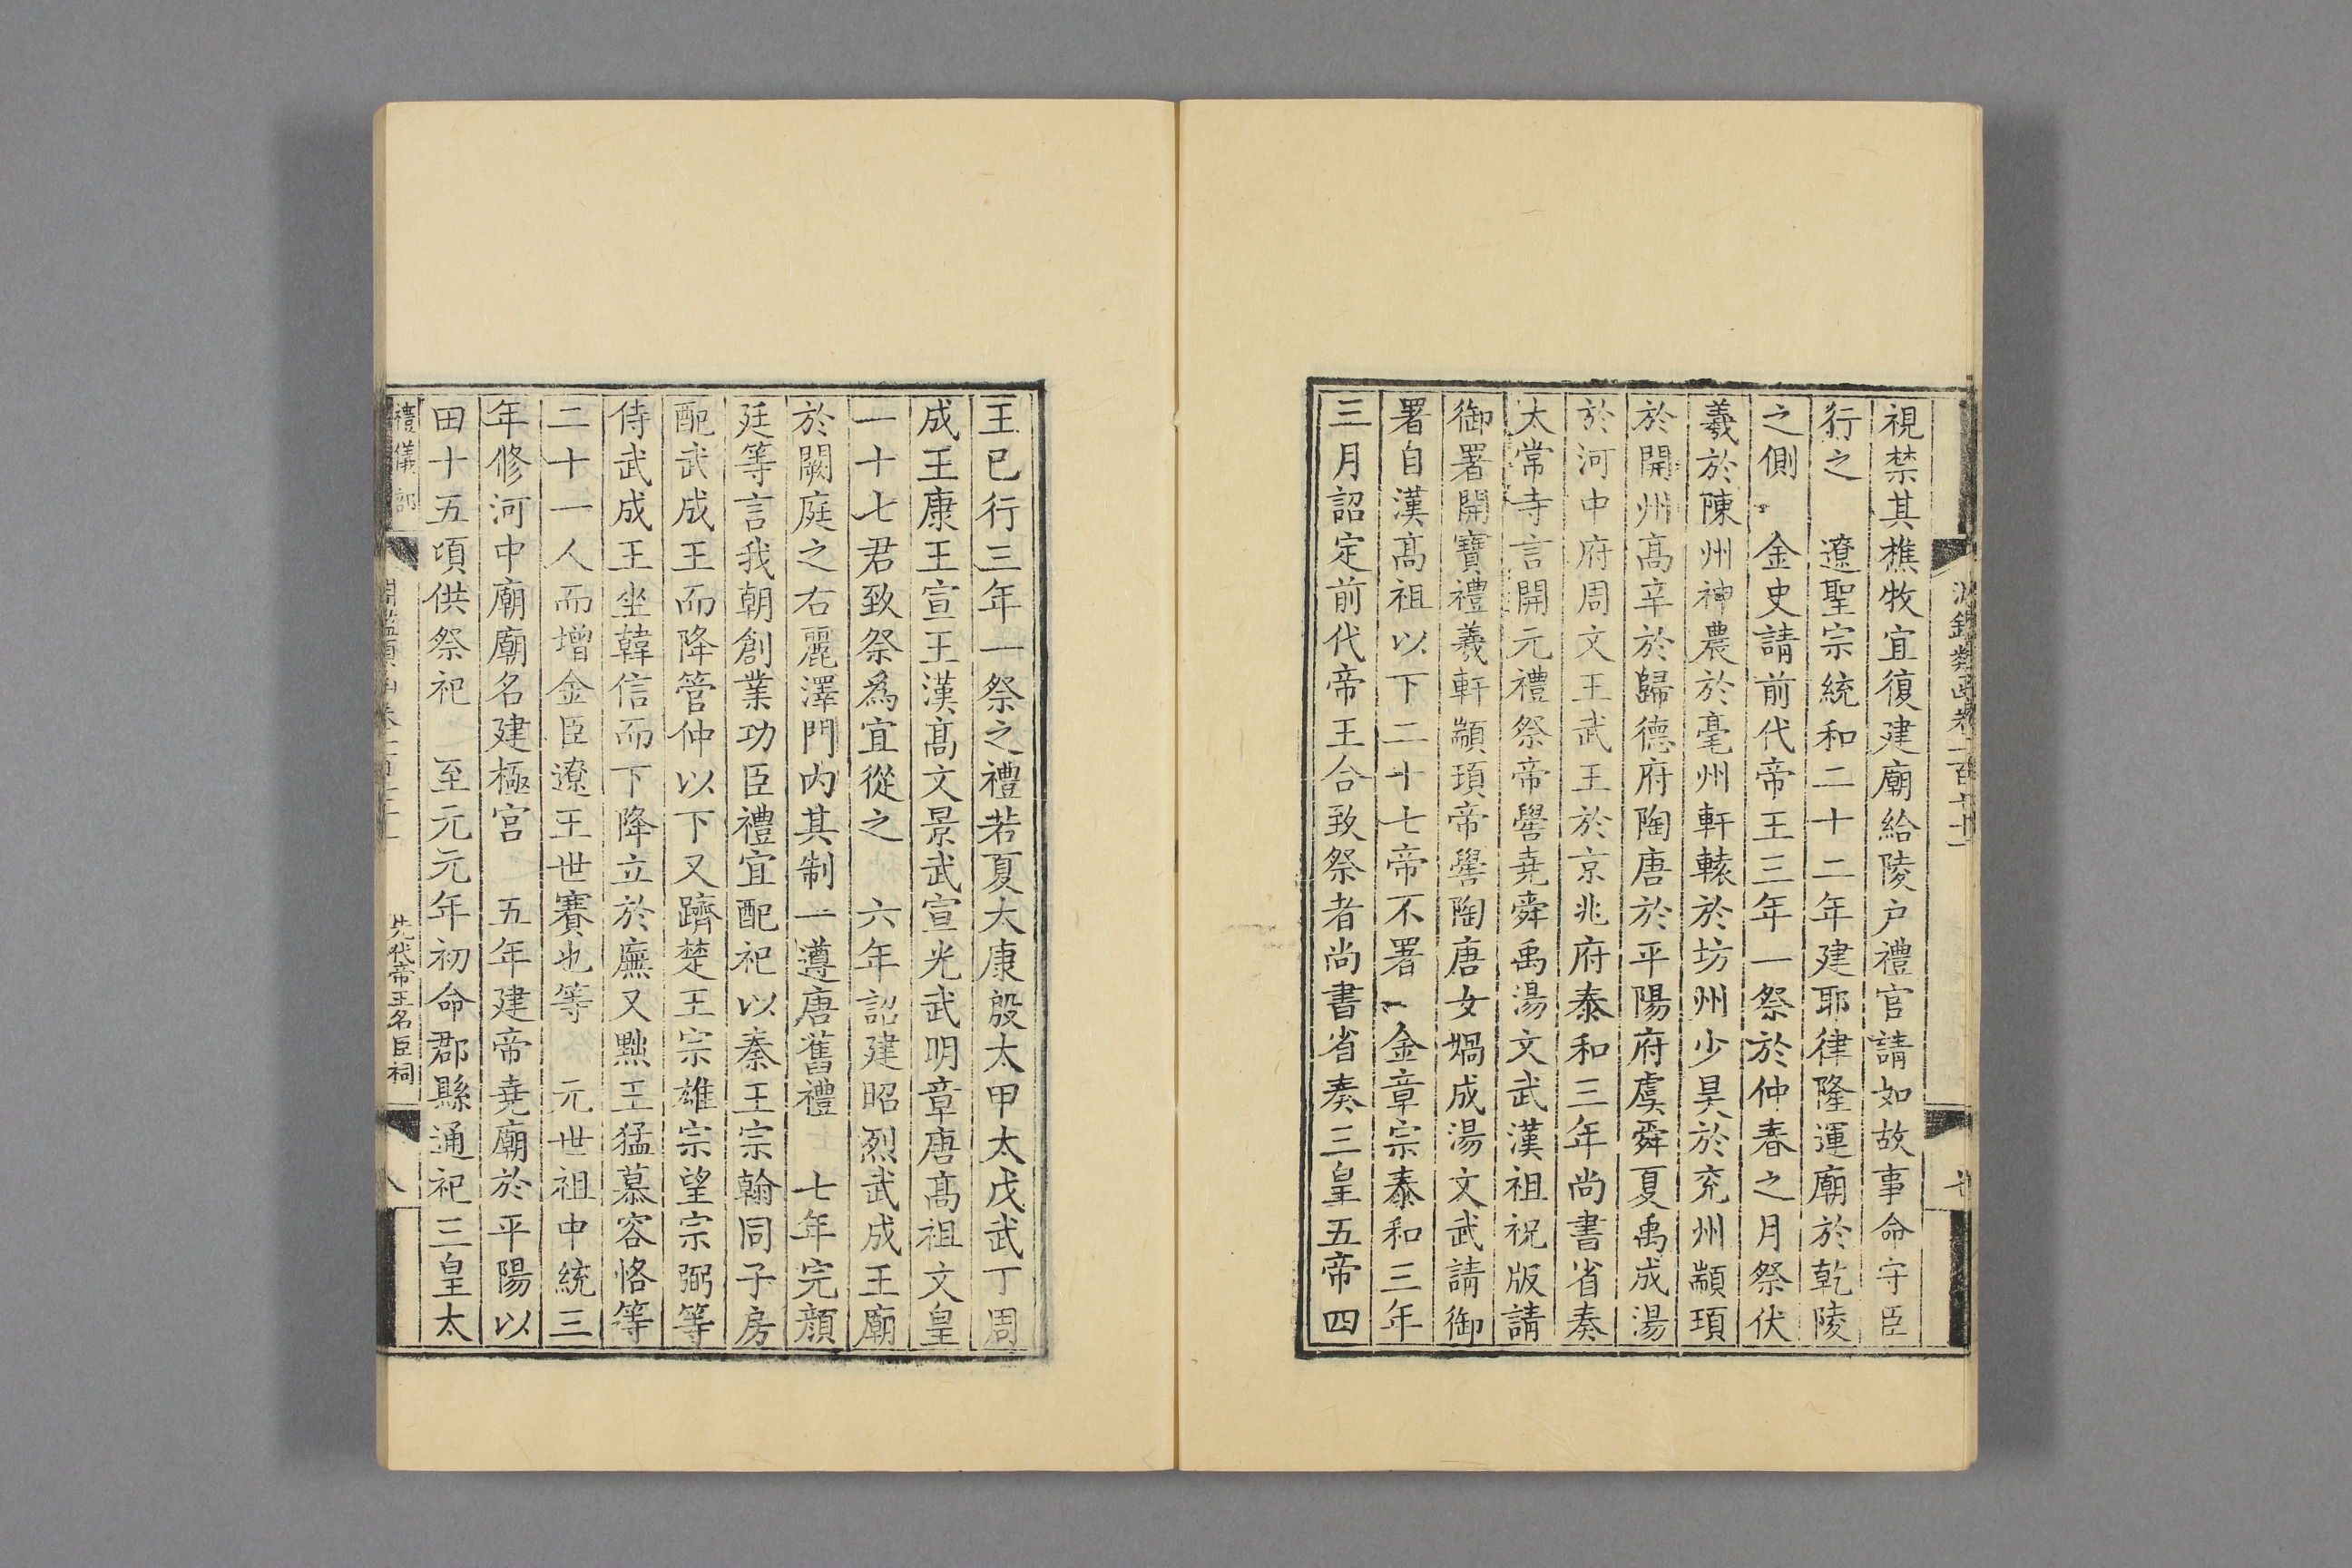 視禁其樵牧宜復建廟給陵户禮官請如故事命守臣
行之　遼聖宗統和二十二年建耶律隆運廟於乾陵
之側　金史請前代帝王三年一祭於仲春之月祭伏
羲於陳州神農於亳州軒轅於坊州少昊於兖州顓頊
於開州髙辛於歸德府陶唐於平陽府虞舜夏禹成湯
於河中府周文王武王於京兆府泰和三年尚書省奏
太常寺言開元禮祭帝嚳堯舜禹湯文武漢祖祝版請
御署開寶禮羲軒顓頊帝嚳陶唐女媧成湯文武請御
署自漢髙祖以下二十七帝不署　金章宗泰和三年
三月詔定前代帝王合致祭者尚書省奏三皇五帝四
王已行三年一祭之禮若夏太康殷太甲太戊武丁周
成王康王宣王漢髙文景武宣光武明章唐髙祖文皇
一十七君致祭爲宜從之　六年詔建昭烈武成王廟
於闕庭之右麗澤門内其制一遵唐舊禮　七年完顔
廷等言我朝創業功臣禮宜配祀以秦王宗翰同子房
配武成王而降管仲以下又躋楚王宗雄宗望宗弼等
侍武成王坐韓信而下降立於廡又黜王猛慕容恪等
二十一人而增金臣遼王世賽也等　元世祖中統三
年修河中廟廟名建極宫　五年建帝堯廟於平陽以
田十五頃供祭祀　至元元年初命郡縣通祀三皇太
禮儀部
先代帝王名臣祠
八